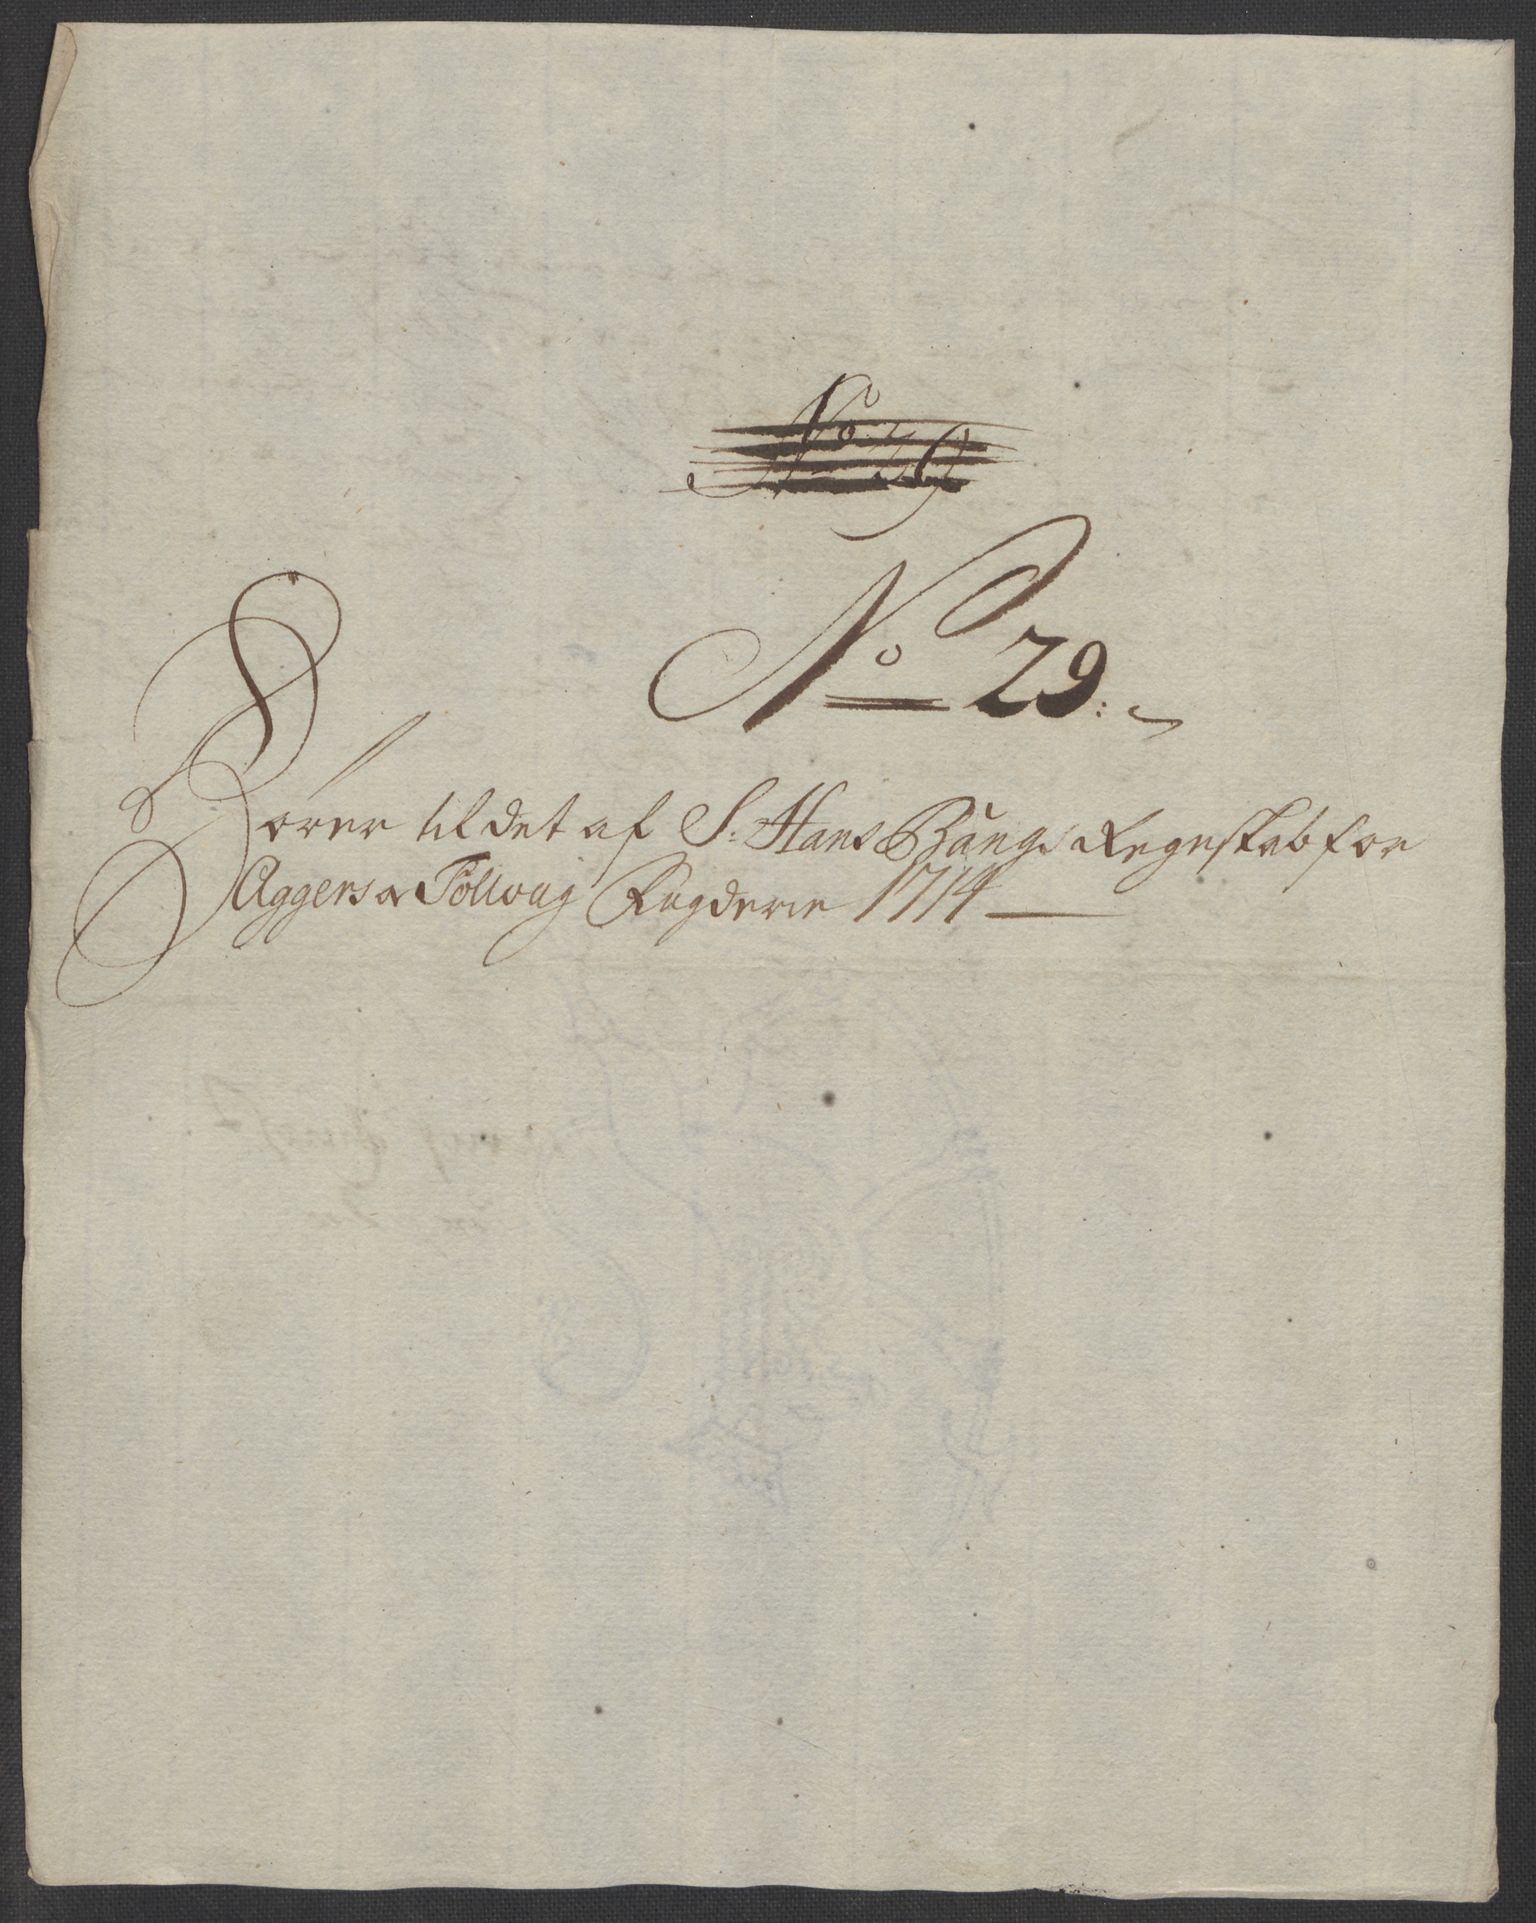 No 29:
Hörer til det af S: Hans Bangs Regnskab for
Aggers og Folloug Fogderie 1714